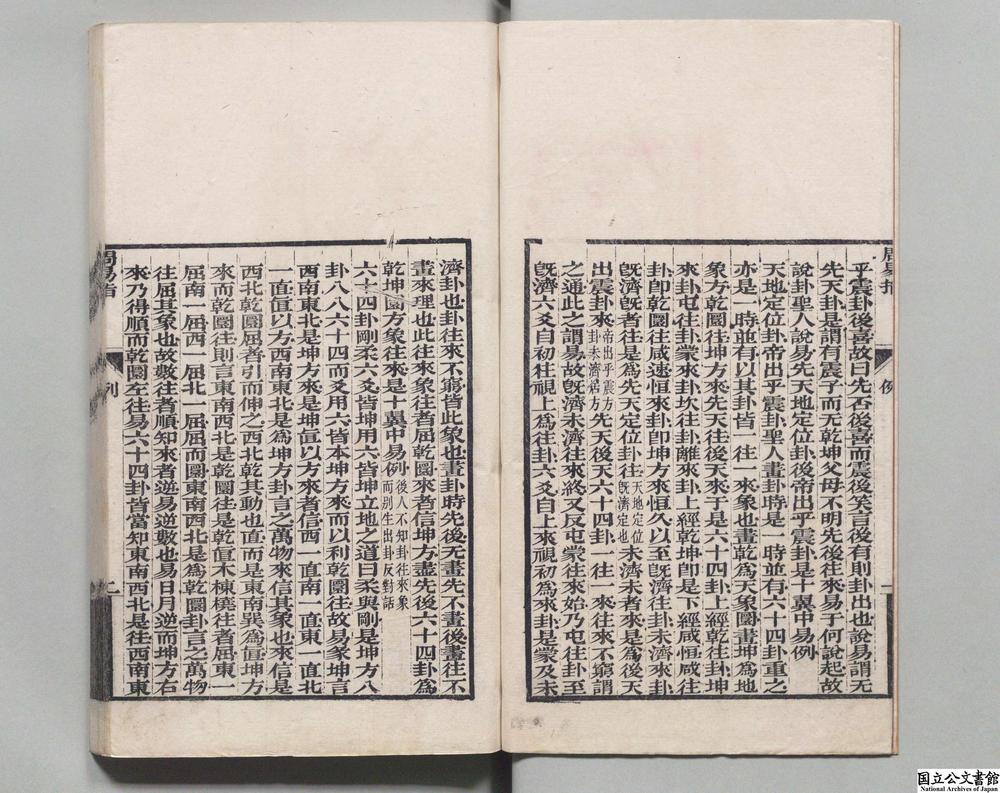 乎震卦後喜故曰先否後喜而震後笑言後有則卦出也說易謂无
先天卦是謂有震子而无乾坤父母不明先後往來易于何說起故
說卦聖人說易先天地定位卦後帝出乎震卦是十翼中易例
天地定位卦帝出乎震卦聖人畫卦時是一時並有六十四卦重之
亦是一時並有以其卦皆一往一來象也畫乾為天象圜畫坤為地
象方乾圜往坤方來先天往後天來于是六十四卦上經乾往卦坤
來卦屯往卦蒙來卦坎往卦離來卦上經乾坤卽是下經咸恒咸往
卦卽乾圜往咸速恒來卦卽坤方來恒久以至旣濟往卦未濟來卦
旣濟旣者往是為先天定位卦往天地定位旣濟定也未濟未者來是為後天
出震卦來帝出乎震方卦未濟居方先天後天六十四卦一往一來往來不窮謂
之通此之謂易故旣濟未濟往來終又反屯蒙往來始乃屯往卦至
旣濟六爻自初往視上為往卦六爻自上來視初為來卦是蒙及未
周易指
例
一
濟卦也卦往來不窮皆此象也畫卦時先後无畫先不畫後畫往不
畫來理也此往來象往者屈乾圜來者信坤方盡先後六十四卦為
乾坤圜方象往來是十翼中易例後人不知卦往來象而別生出卦反對話
六十四卦剛柔六爻皆坤用六皆坤立地之道曰柔與剛是坤方八
卦八八六十四而爻用六皆本坤方來而以利乾圜往故易象坤言
西南東北是坤方來是坤直以方來者信西一直南一直東一直北
一直直以方西南東北是為坤方卦言之萬物來信其象也來信是
西北乾圜屈者引而伸之西北乾其動也直而是東南巽為直坤方
來而乾圜往則言東南西北是乾圜往是乾直木棟橈往者屈東一
屈南一屈西一屈北一屈屈而圜東南西北是為乾圜卦言之萬物
往屈其象也故數往者順知來者逆易逆數也易日月逆而坤方右
來乃得順而乾圜左往易六十四卦皆當知東南西北是往西南東
周易指
例
二
国立公文書館
National Archives of Japan